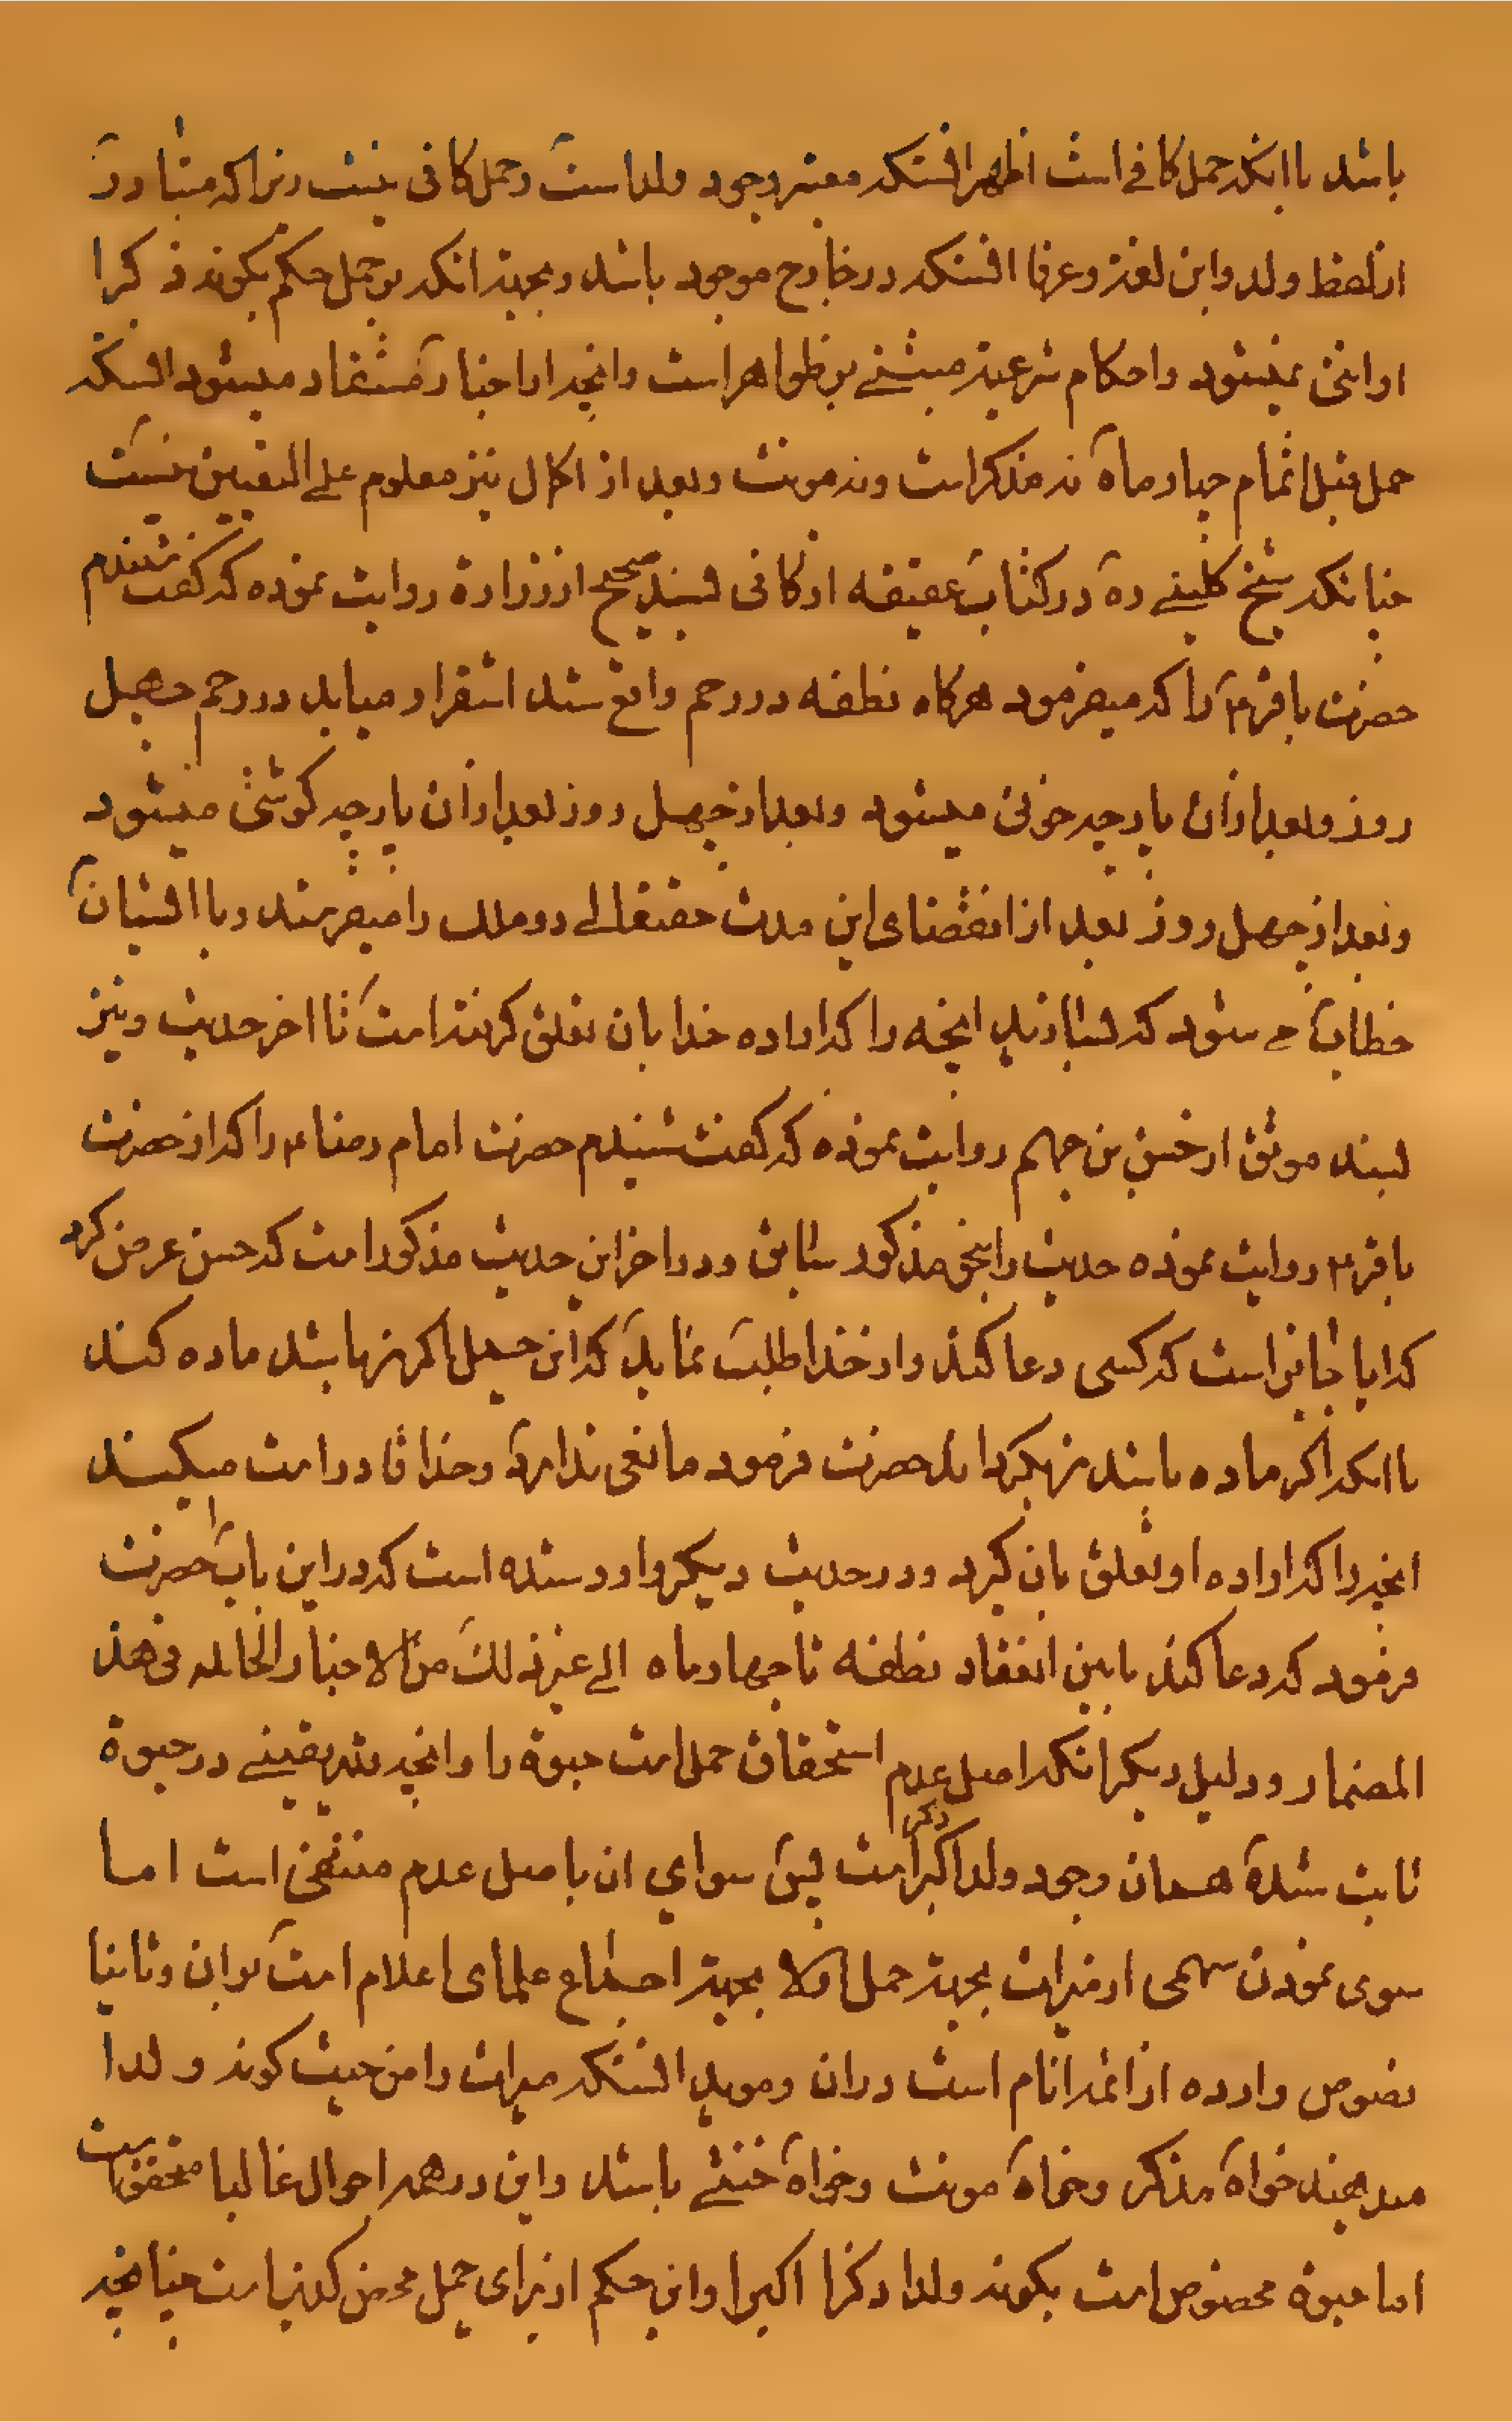 باشد یا انکه حمل کافی است اظهر انستکه معتبر وجود ولد است و حمل کافی نیست زیرا که متبادر
از لفظ ولد و ابن لغة و عرفا انستکه در خارج موجود باشد و بجهة انکه بر حمل حکم بکونه ذکرا
او انثی نمیشود و احکام شرعیة مبتنی بر ظواهر است و انچه از اخبار مستفاد میشود انستکه
حمل قبل اتمام چهار ماه نه مذکر است و نه مونث و بعد از اکمال نیز معلوم علی الیقین نیست
چنانکه شیخ کلینی ره در کتاب عقیقه از کافی بسند صحیح از زرارة روایت نموده که گفت شنیدم
حضرت باقر ع را که میفرمود هرکاه نطفه در رحم واقع شد استقرار میابد در رحم چهل
روز و بعد ازان پارچه خونی میشود و بعد از چهل روز بعد ازان پارچه کوشتی میشود
و بعد از چهل روز بعد از انقضای این مدت حقتعالی دو ملک را میفرستد و با ایشان
خطاب می شود که بسازید انچه را که اراده خدا بان تعلق کرفته است تا اخر حدیث و نیز
بسند موثق از حسن بن جهم روایت نموده که کفت شنیدم حضرت امام رضا ع را که از حضرت
باقر ع روایت نموده حدیث را بنحو مذکور سابق و در اخر این حدیث مذکور است که حسن عرض کرد
که ایا جایز است که کسی دعا کند و از خدا طلب نماید که این حمل اکر نر باشد ماده کند
یا انکه اکر ماده باشد نر بکرداند حضرت فرمود مانعی ندارد و خدا قادر است میکند
انچه را که اراده او تعلق بان کیرد و در حدیث دیکر وارد شده است که در این باب حضرت
فرمود که دعا کند مابین انعقاد نطفه تا چهار ماه الی غیر ذلک من الاخبار فی هذ
المضمار و دلیل دیکر انکه اصل عدم استحقاق حمل است حبوة را و انچه یقینی در حبوة
ثابت شده همان وجود ولد ذکر اکبر است پس سوای ان باصل عدم منتفی است اما
سوی نمودن سهمی از میراث بجهة حمل اولا بجهة اجماع علمای اعلام است بر ان و ثانیا
نصوص وارده از ائمه انام است دران و موید انستکه میراث را من حیث کونه ولدا
میدهند خواه مذکر و خواه مونث و خواه خنثی باشد و این در همه احوال غالبا متحقق است
اما حبوة مخصوص است بکونه ولدا ذکرا اکبرا و این حکم از برای حمل محض کذب است چنانچه